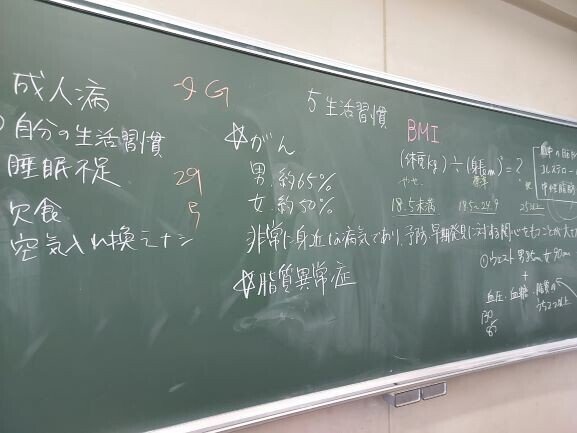 成人病
自分の生活習慣
睡眠不足 29
欠食 5
空気入れ換えナシ
G
5 生活習慣
☆がん
男 約65%
女 約50%
非常に身近な病気であり、予防・早期発見に対する関心をもつことが大
☆脂質異常症
BMI
(体重kg) ÷ (身長m) = ?
やせ 標準 肥
18.5未満 18.5~24.9 25以上
中の脂肪
コレステロー
中性脂肪
①ウエスト 男85cm 女90cm
+
血圧、血糖、脂質の
うち2つ以上
130
85